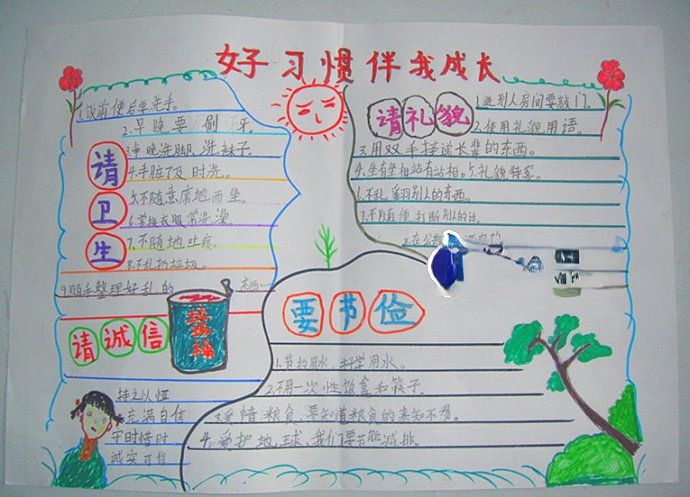 好习惯伴我成长
请卫生
1.饭前便后要洗手。
2.早晚要刷牙。
3.每晚洗脚、洗袜子。
4.手脏了及时洗。
5.不随意席地而坐
6.常换衣服常洗澡。
7.不随地吐痰。
8.不乱扔垃圾。
9.随手整理好乱的
请礼貌
1.进别人房间要敲门。
2.使用礼貌用语。
3.用双手接递长辈的东西。
4.坐有坐相站有站相。5.礼貌待客。
6.不乱翻别人的东西。
7.不随便打断别人的话。
请诚信
持之以恒
充满自信
守时惜时
诚实可信
垃圾桶
要节俭
1.节约用水、科学用水。
2.不用一次性饭盒和筷子。
3.爱惜粮食、要知道粮食的来知不易。
4.爱护地球、我们要节能减排。